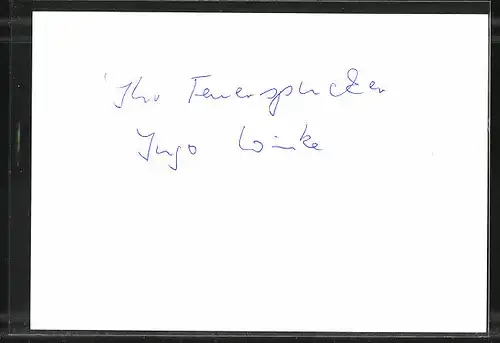 Ihr Feuerspucker
Ingo Winke